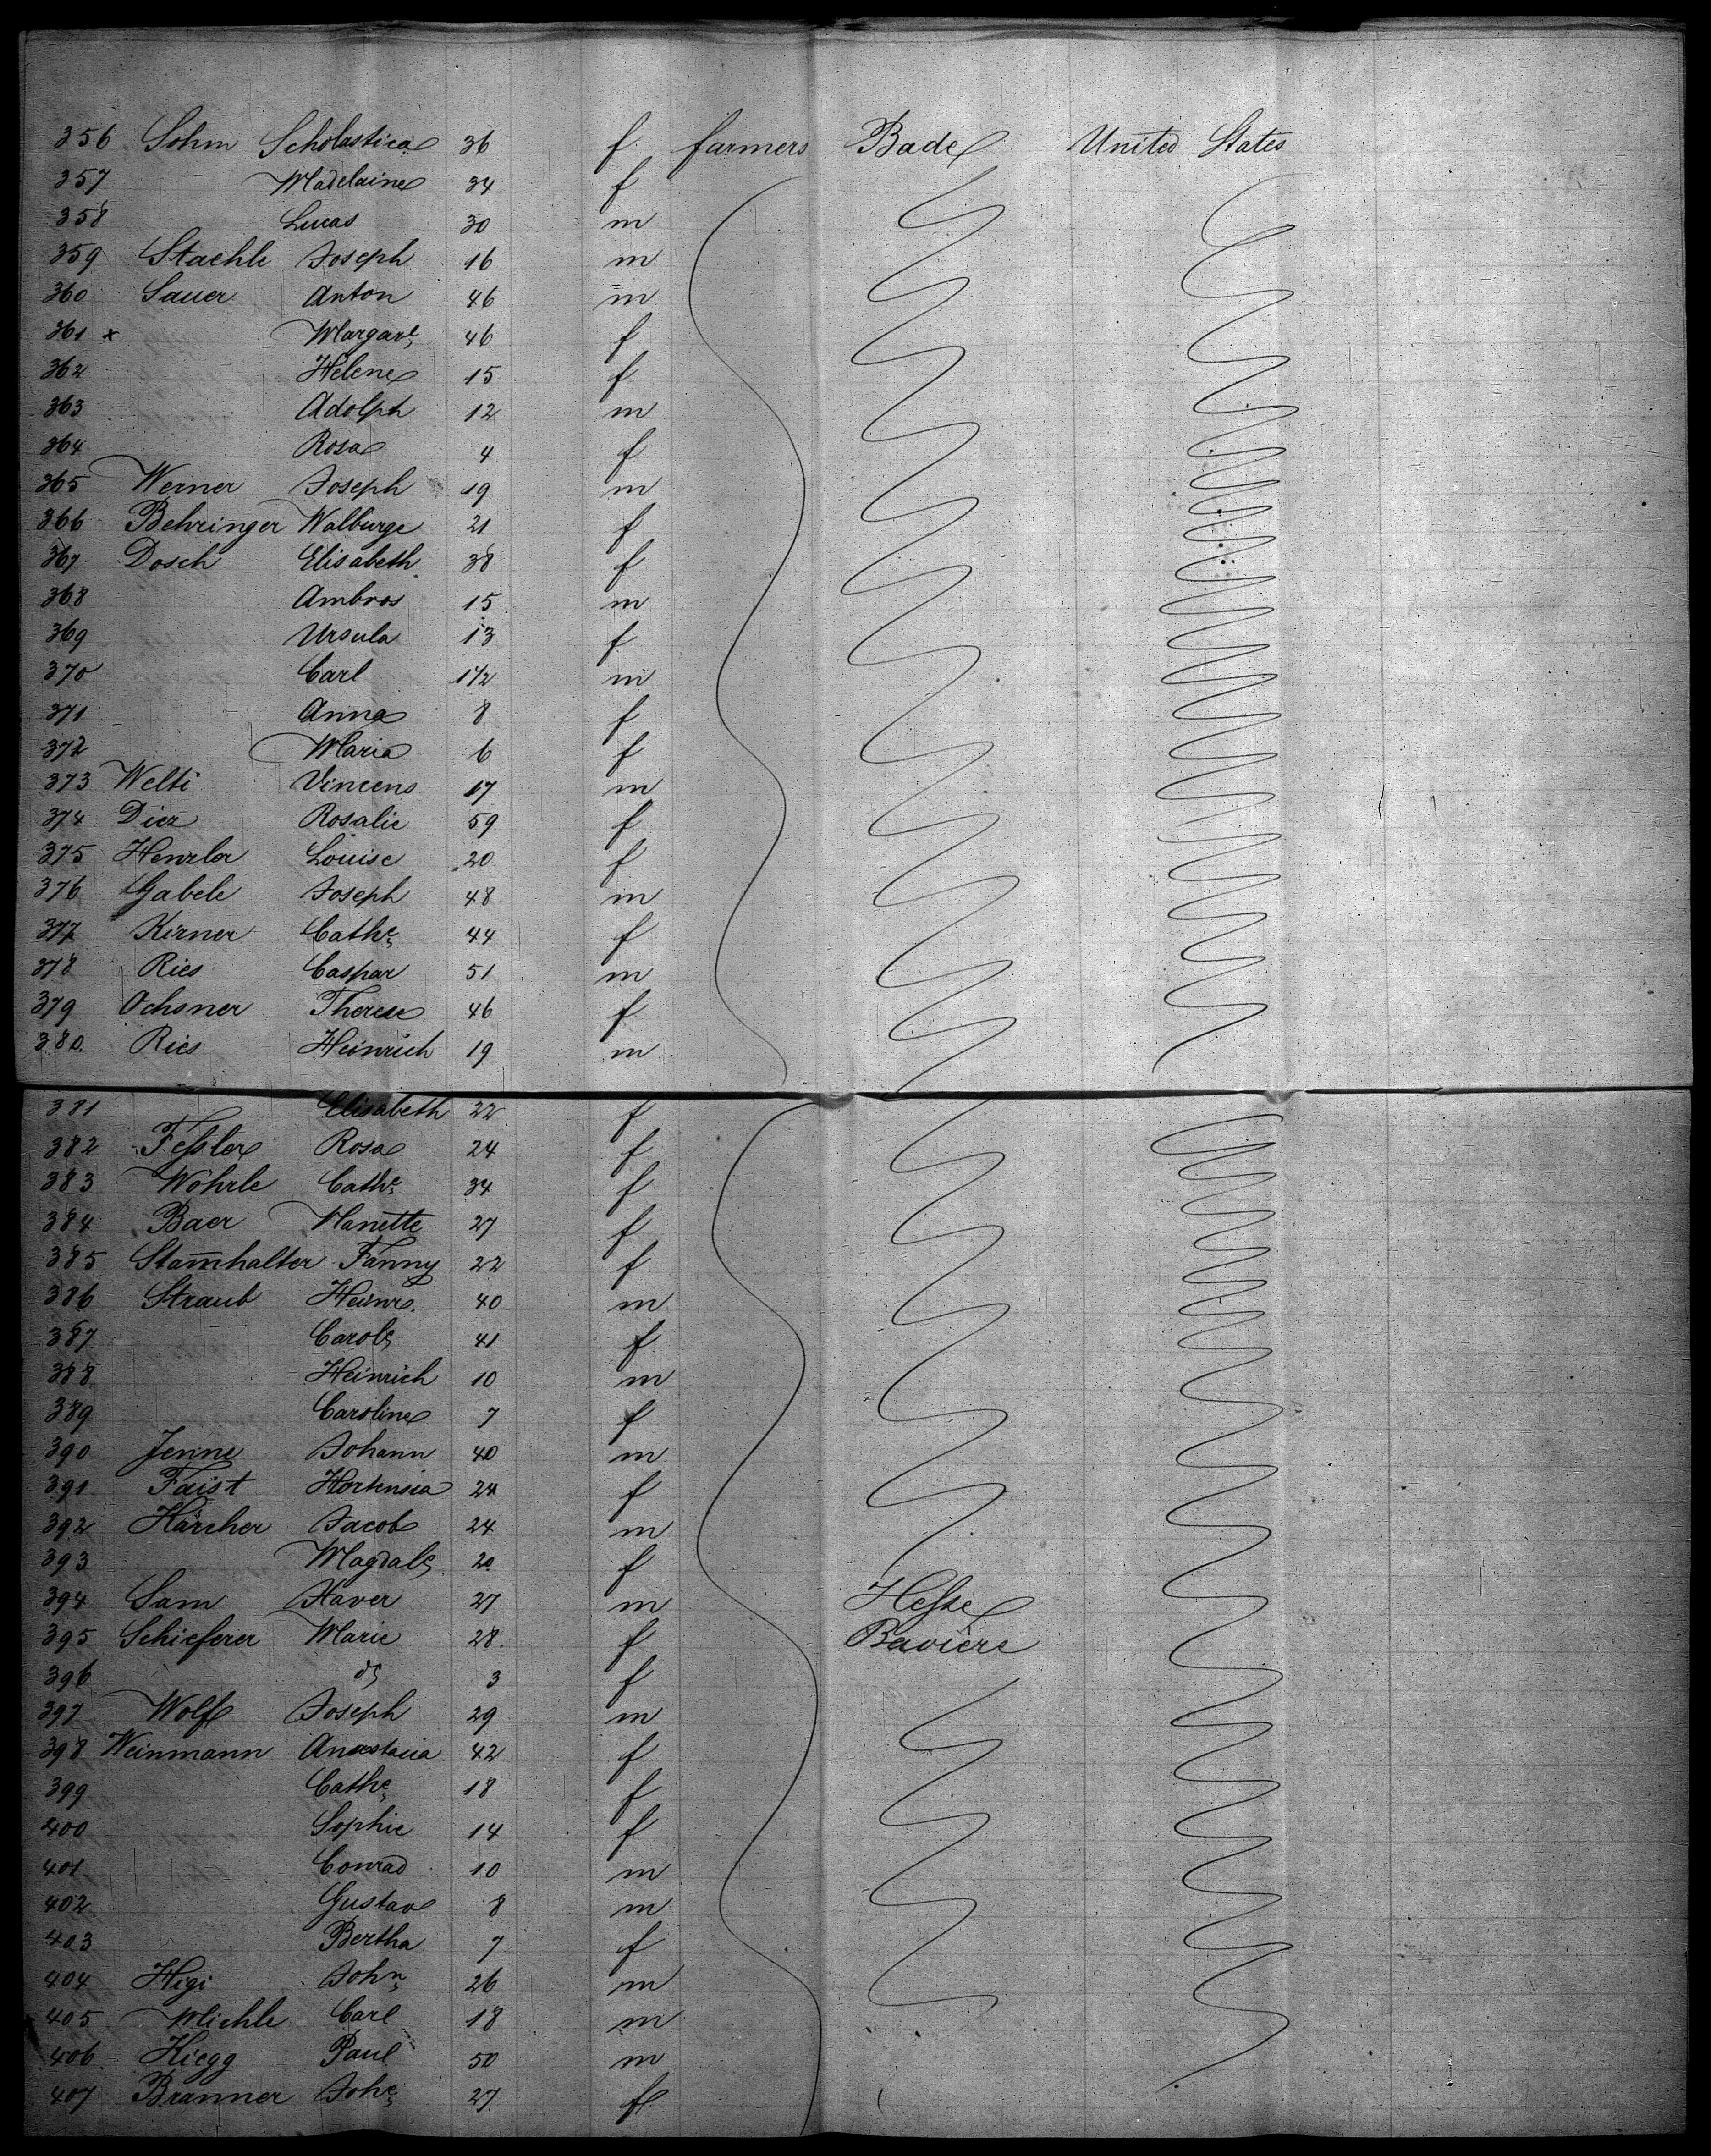 356 Sohm Scholastica 36 f farmers Bade United States
357 Madelaine 34 f
358 Lucas 30 m
359 Staehle Joseph 16 m
360 Sauer Anton 46 m
361 x Margare 46 f
362 Helene 15 f
363 Adolph 12 m
364 Rosa 4 f
365 Werner Joseph 19 m
366 Behringer Walburge 21 f
367 Dosch Elisabeth 38 f
368 Ambros 15 m
369 Ursula 13 f
370 Carl 1 1/2 m
371 Anna 8 f
372 Maria 6 f
373 Welti Vincens 17 m
374 Diez Rosalie 59 f
375 Henzler Louise 20 f
376 Gabele Joseph 48 m
377 Kirner Cathe 44 f
378 Ries Caspar 51 m
379 Ochsner Therese 46 f
380. Ries Heinrich 19 m
381 Elisabeth 22 f
382 Feßler Rosa 24 f
383 Wöhrle Cathe 34 f
384 Baer Nanette 27 f
385 Stam̅halter Fanny 22 f
386 Straub Heinr. 40 m
387 Carole 41 f
388 Heinrich 10 m
389 Caroline 7 f
390 Jenne Johann 40 m
391 Faist Hortensia 24 f
392 Härcher Jacob 24 m
393 Magdale 20 f
394 Sam Xaver 27 m Heße
395 Schieferer Marie 28 f Baviere
396 do 3 f
397 Wolf Joseph 29 m
398 Weinmann Anastasia 42 f
399 Cathe 18 f
400 Sophie 14 f
401 Conrad 10 m
402 Gustav 8 m
403 Bertha 7 f
404 Higi John 26 m
405 Michle Carl 18 m
406 Kiegg Paul 50 m
407 Branner Johe 27 f